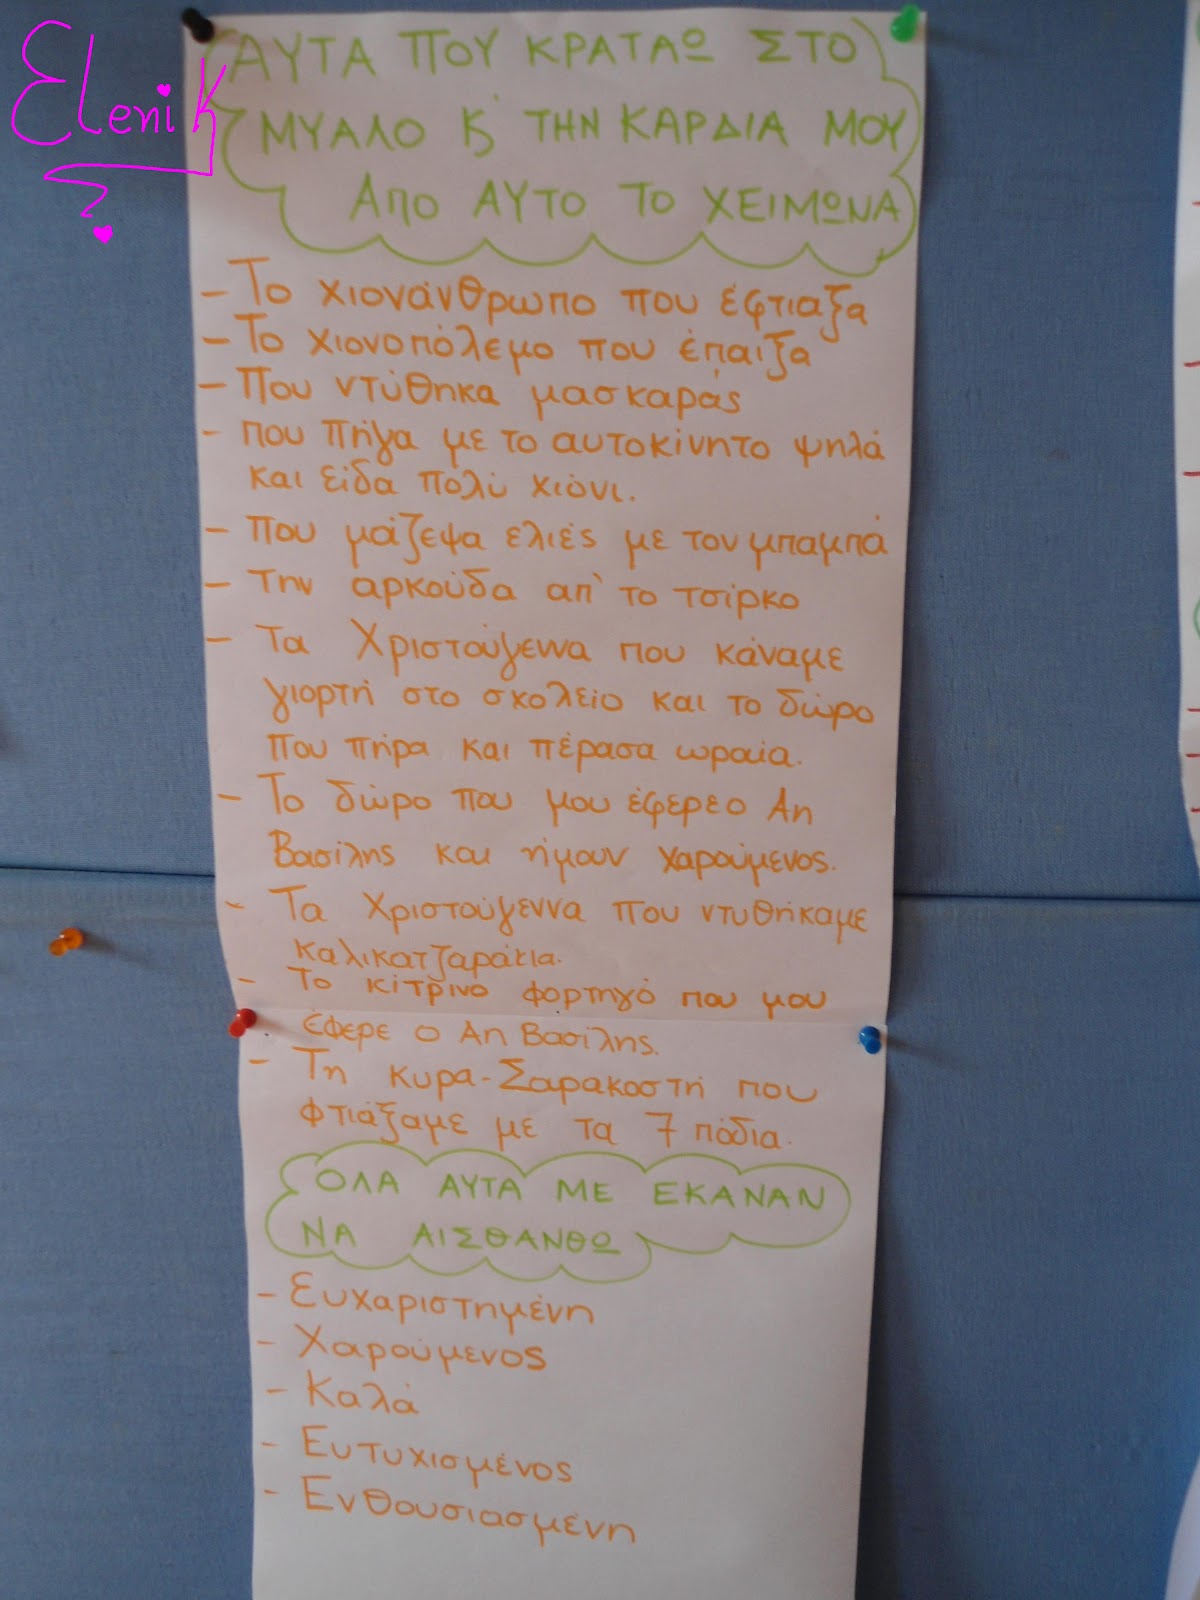 Eleni K
ΑΥΤΑ ΠΟΥ ΚΡΑΤΑΩ ΣΤΟ
ΜΥΑΛΟ Κ' ΤΗΝ ΚΑΡΔΙΑ ΜΟΥ
ΑΠΟ ΑΥΤΟ ΤΟ ΧΕΙΜΩΝΑ
- Το χιονάνθρωπο που έφτιαξα
- Το χιονοπόλεμο που έπαιξα
- Που ντύθηκα μασκαράς
- που πήγα με το αυτοκίνητο ψηλά
και είδα πολύ χιόνι.
- που μάζεψα ελιές με τον μπαμπά
- την αρκούδα απ' το τσίρκο
- Τα Χριστούγεννα που κάναμε
γιορτή στο σχολείο και το δώρο
που πήρα και πέρασα ωραία.
- Το δώρο που μου έφερε ο Αη
Βασίλης και ήμουν χαρούμενος.
- Τα Χριστούγεννα που ντυθήκαμε
καλικατζαράκια.
- Το κίτρινο φορτηγό που μου
έφερε ο Αη Βασίλης.
- Τη κυρα-Σαρακοστή που
φτιάξαμε με τα 7 πόδια.
ΟΛΑ ΑΥΤΑ ΜΕ ΕΚΑΝΑΝ
ΝΑ ΑΙΣΘΑΝΘΩ
- Ευχαριστημένη
- Χαρούμενος
- Καλά
- Ευτυχισμένος
- Ενθουσιασμένη